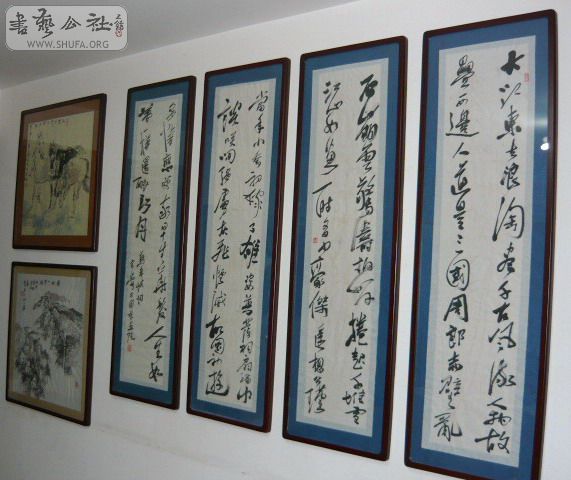 書藝公社
WWW.SHUFA.ORG
大江東去浪淘盡千古風流人物故
壘西邊人道是三國周郎赤壁亂
石崩雲驚濤拍岸捲起千堆雪
江山如畫一時多少豪傑遙想公瑾
當年小喬初嫁了雄姿英發羽扇綸巾
談笑間強虜灰飛煙滅故國神遊
多情應笑我早生華髮人生如
夢一樽還酹江月